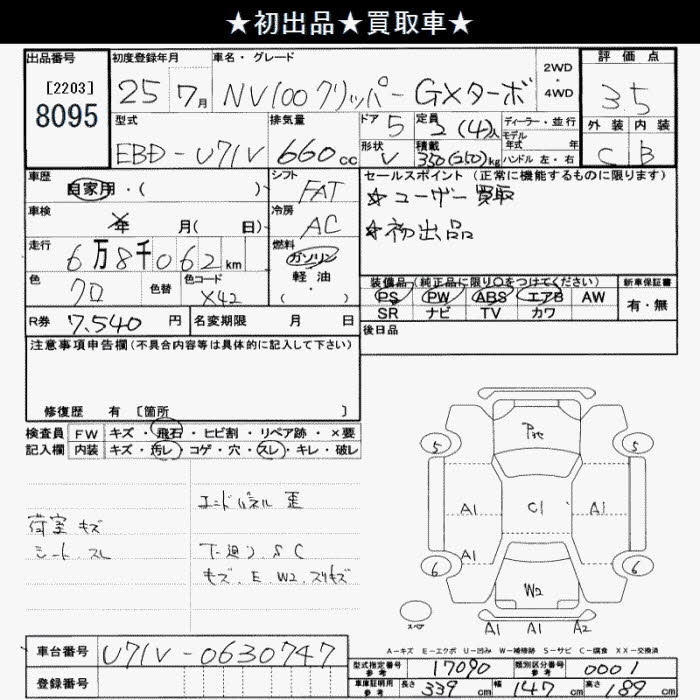 ★初出品★買取車★
出品番号 初度登録年月 車名・グレード 2WD ・ 4WD 評価点
[2203] 8095 25 7月 NV100クリッパー GXターボ 3.5
型式 排気量 ドア 5 定員 2(4)人 ディーラー・並行 外装 内装
モデル 年式 年
EBD-U71V 660cc 形状 V 積載 350(250)kg ハンドル 左・右 C B
車歴 自家用・( ) シフト FAT セールスポイント (正常に機能するものに限ります)
☆ユーザー買取
車検 年 月( 日) 冷房 AC ☆初出品
走行 6万8千062km 燃料 ガソリン 軽油 ・( )
色 クロ 色替 色コード X42 装備品 (純正品に限り○をつけてください) 新車保証書
PS PW ABS エアB AW 有・無
SR ナビ TV カワ
R券 7,540円 名変期限 月 日 後日品
注意事項申告欄(不具合内容等は具体的に記入して下さい)
修復歴 有 〔箇所 〕
検査員 FW キズ・飛石・ヒビ割・リペア跡・×要
記入欄 内装 キズ・汚レ・コゲ・穴・スレ・キレ・破レ
エンドパネル 歪
荷室 キズ
シート スレ
下廻り S C
キズ、E W2、スリキズ
5 5
A1 C1 A1
A1
6 6
W2
スペア A1 A1 A2
A-キズ E-エクボ U-凹み W-補修跡 S-サビ C-腐食 XX-交換済
車台番号 U71V-0630747
型式指定番号 参考 17090 類別区分番号 参考 0001
登録番号
車庫証明用 参考 長さ 339cm 幅 147cm 高さ 189cm